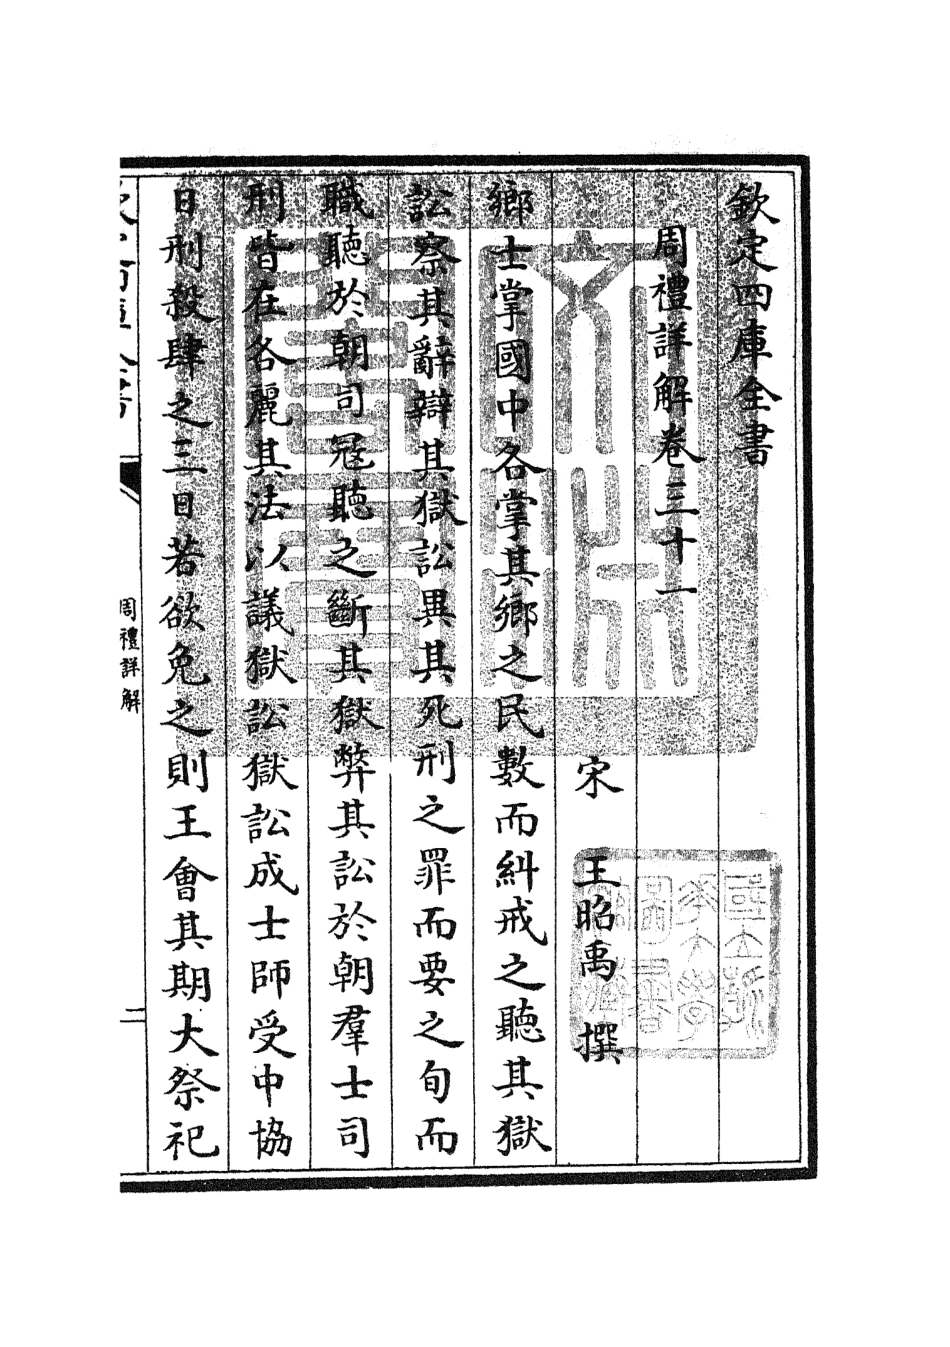 欽定四庫全書
周禮詳解卷三十一
宋 王昭禹 撰
鄉士掌國中各掌其鄉之民數而糾戒之聽其獄
訟察其辭辯其獄訟異其死刑之罪而要之旬而
職聽於朝司冦聽之斷其獄弊其訟於朝羣士司
刑皆在各麗其法以議獄訟獄訟成士師受中協
日刑殺肆之三日若欲免之則王會其期大祭祀
周禮詳解